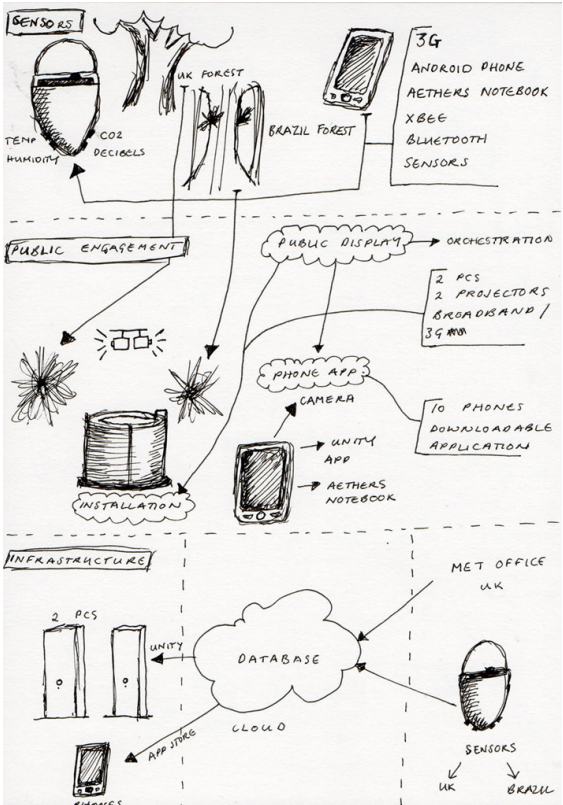 SENSORS
UK FOREST
TEMP
HUMIDITY
CO2
DECIBELS
BRAZIL FOREST
3G
ANDROID PHONE
AETHERS NOTEBOOK
XBEE
BLUETOOTH
SENSORS
PUBLIC ENGAGEMENT
PUBLIC DISPLAY
ORCHESTRATION
2 PCS
2 PROJECTORS
BROADBAND/
3G
PHONE APP
CAMERA
10 PHONES
DOWNLOADABLE
APPLICATION
UNITY
APP
AETHERS
NOTEBOOK
INSTALLATION
INFRASTRUCTURE
MET OFFICE
UK
2 PCS
UNITY
DATABASE
CLOUD
APP STORE
SENSORS
UK
BRAZIL
PHONES